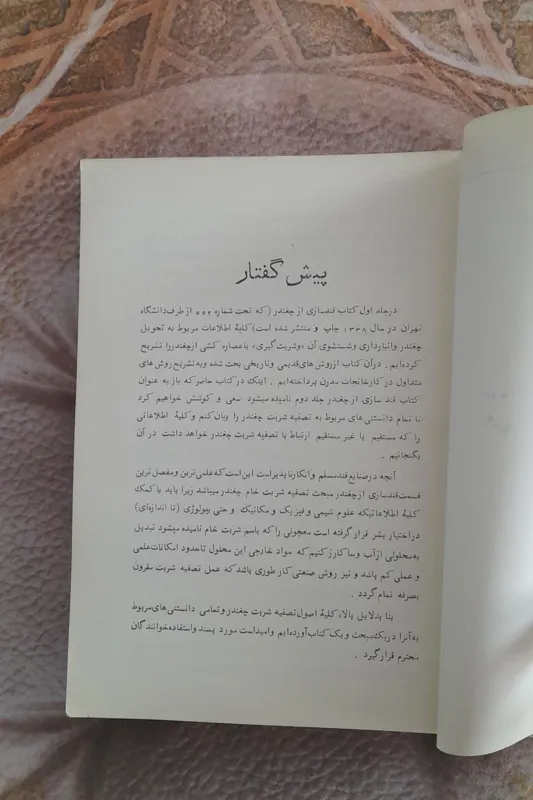 پیش گفتار
درجلد اول کتاب قندسازی ازچغندر (که تحت شماره ۵۵۲ ازطرف‌دانشگاه
تهران در سال ۱۳۳۸ چاپ و منتشر شده است) کلیهٔ اطلاعات مربوط به تحویل
چغندر وانبارداری وشستشوی آن «وشربت‌گیری» یاعصاره کشی ازچغندررا تشریح
کرده‌ایم . درآن کتاب ازروش‌های‌قدیمی وتاریخی بحث شده وبه‌تشریح‌روش‌های
متداول در کارخانجات مدرن پرداخته‌ایم . اینک درکتاب حاضرکه باز به عنوان
کتاب قند سازی ازچغندر جلد دوم نامیده میشود سعی و کوشش خواهیم کرد
تا تمام دانستنی‌های مربوط به تصفیه شربت چغندر را وبان‌کنم و کلیهٔ اطلاعاتی
را که مستقیم یا غیر مستقیم ارتباط با تصفیه شربت چغندر خواهد داشت در آن
بگنجانیم .
آنچه درصنایع قندمسلم وانکارناپذیراست این‌است‌که‌علمی‌ترین و مفصل‌ترین
قسمت‌قندسازی ازچغندر مبحث تصفیه شربت خام چغندرمیباشد زیرا باید با کمک
کلیهٔ اطلاعاتیکه علوم شیمی وفیزیک و مکانیک و حتی بیولوژی (تا اندازه‌ای)
دراختیار بشر قرارگرفته است معجونی را که‌باسم شربت خام نامیده میشود تبدیل
به‌محلولی ازآب وساکارزکنیم‌که مواد خارجی این محلول تاحدود امکانات‌علمی
و عملی کم باشد و نیز روش صنعتی‌کار طوری باشدکه عمل تصفیه شربت مقرون
بصرفه تمام گردد .
بنا بدلایل بالا، کلیهٔ اصول‌تصفیه شربت چغندر وتمامی دانستنی‌های‌مربوط
به‌آنرا دریک‌مبحث ویک‌کتاب‌آورده‌ایم وامیداست مورد پسند واستفاده‌خوانندگان
محترم قرارگیرد .